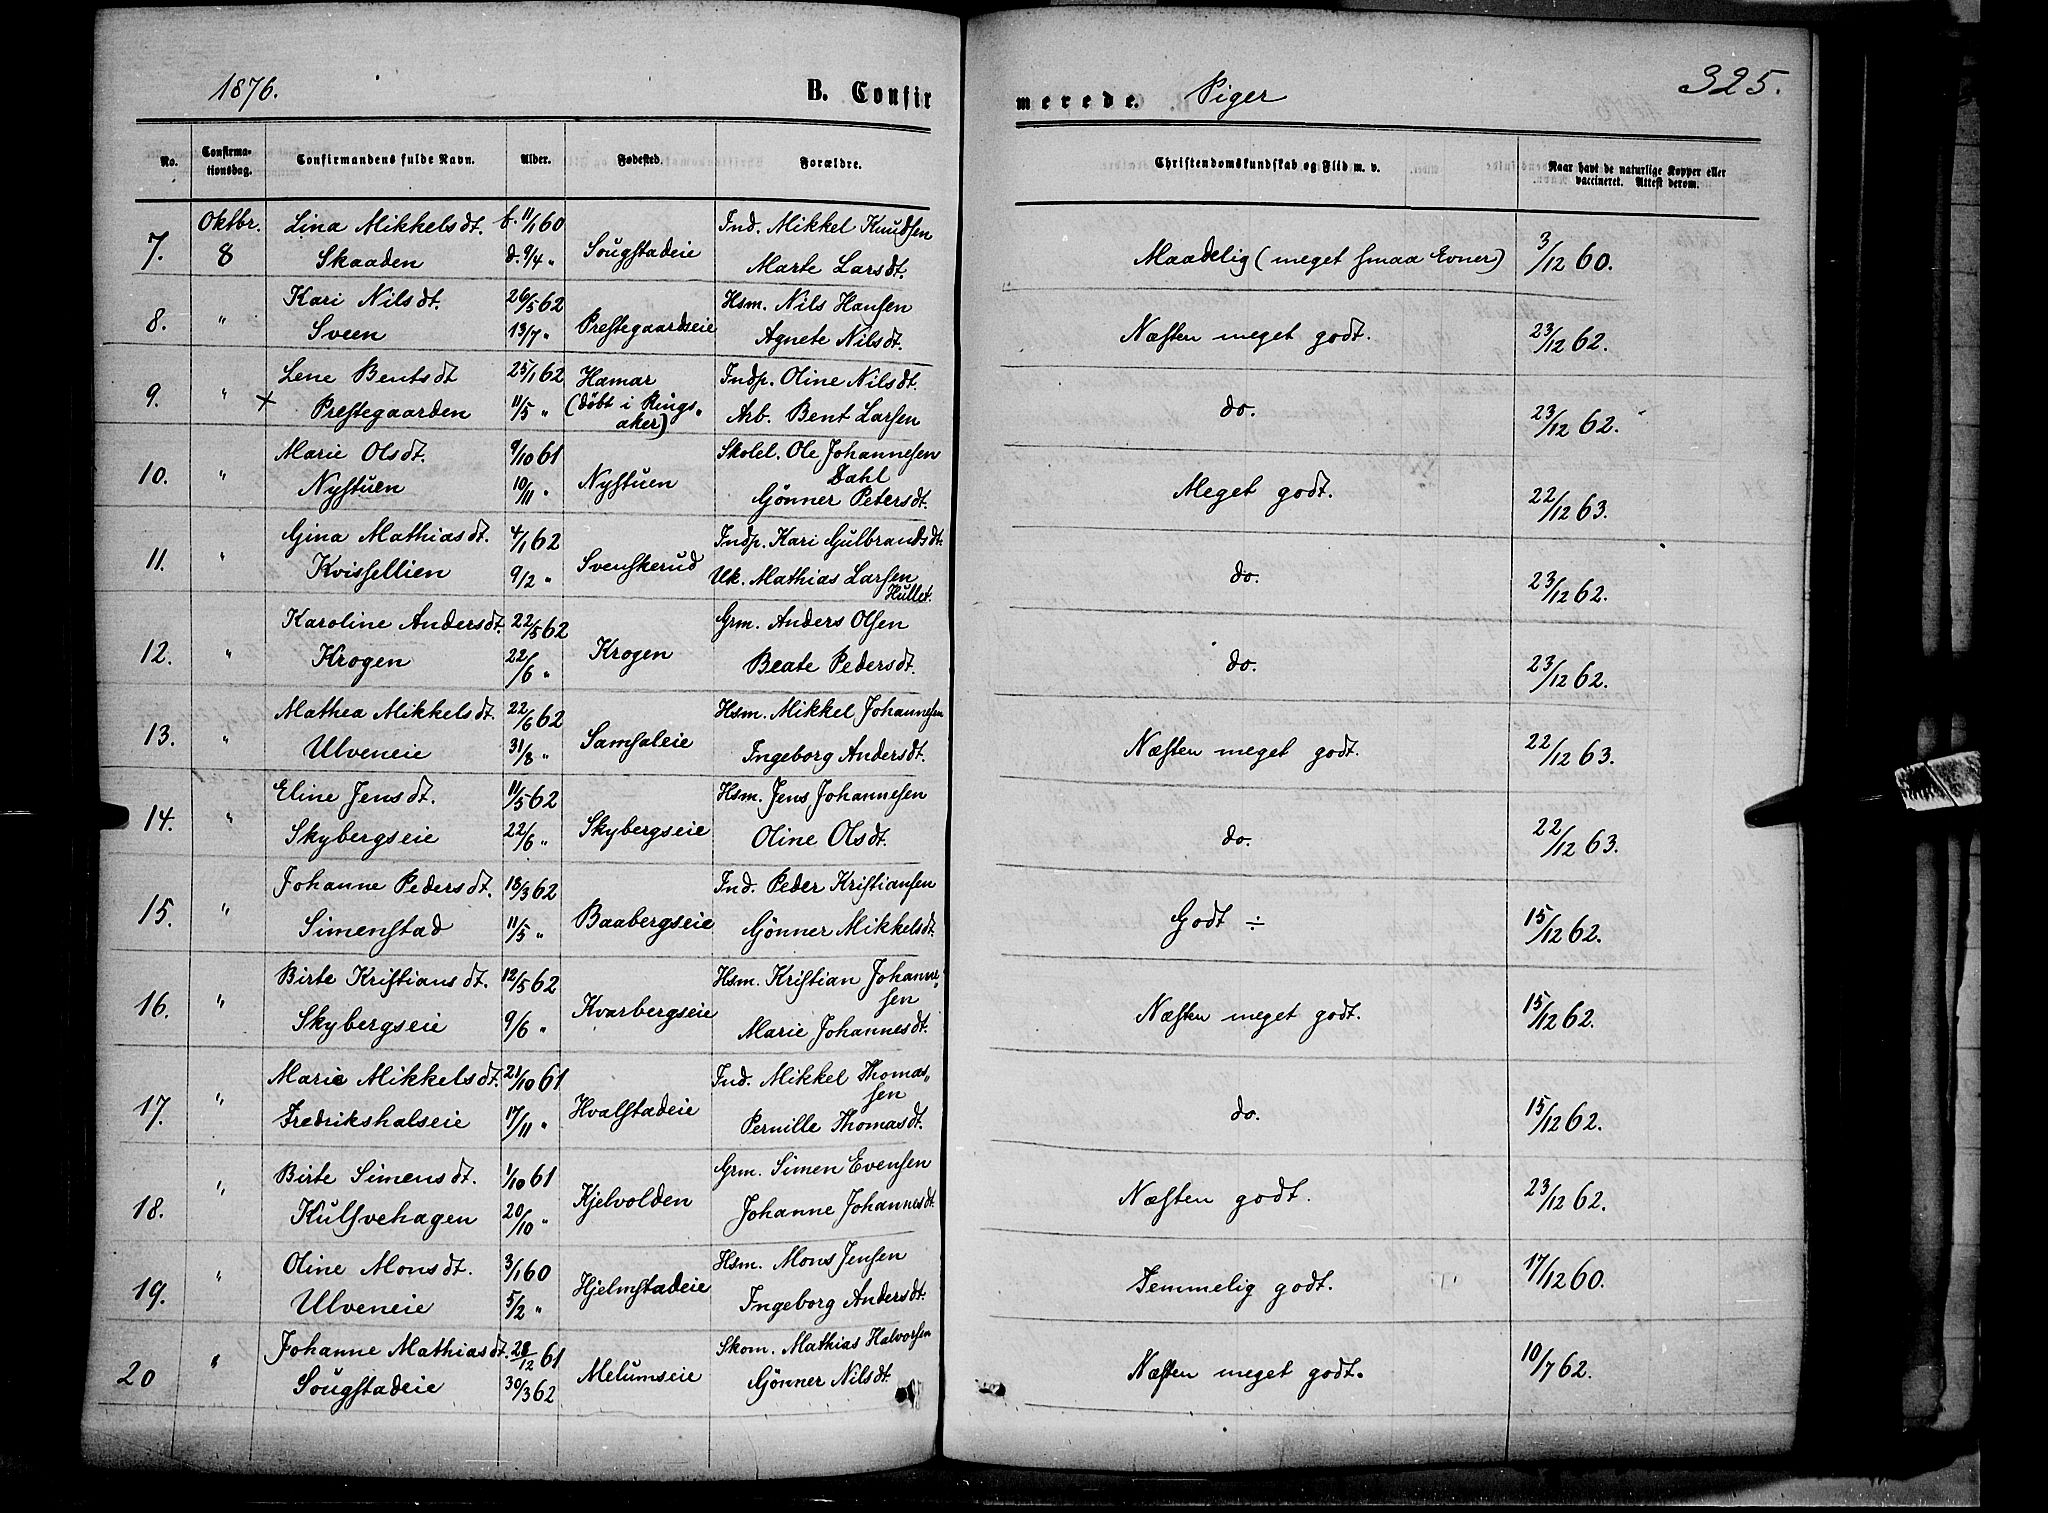 1876. B. Confir merede. Piger 325.
No. Confirmationsdag. Confirmandens fulde Navn. Alder. Fødested. Forældre. Christendomskundskab og Flid m. v. Naar havt de naturlige Kopper eller vaccineret. Attest derom.
7. Oktbr. 8 Lina Mikkelsdt. f. 11/1 60 Sougstadeie Ind. Mikkel Knudsen Maadelig (meget smaa Evner) 3/12 60.
Skaaden d. 9/4 " Marte Larsdt.
8. " Kari Nilsdt. 26/5 62 Prestegaardseie Hsm. Nils Hansen Næsten meget godt. 23/12 62.
Sveen 13/7 " Agnete Nilsdt.
9. " Lene Bentsdt 25/1 62 Hamar Indp. Oline Nilsdt. do. 23/12 62.
× Prestegaarden 11/5 " (døbt i Rings- aker) Arb. Bent Larsen
10. " Marie Olsdt. 9/10 61 Nystuen Skolel. Ole Johannesen Dahl Meget godt. 22/12 63.
Nystuen 10/11 " Gønner Petersdt.
11. " Gina Mathiasdt. 4/1 62 Svenskerud Indp. Kari Gulbrandsdt. do. 23/12 62.
Kvissellien 9/2 " Uk. Mathias Larsen Hullet.
12. " Karoline Andersdt. 22/5 62 Krogen Grm. Anders Olsen do. 23/12 62.
Krogen 22/6 " Beate Pedersdt.
13. " Mathea Mikkelsdt. 22/6 62 Samsaleie Hsm. Mikkel Johannesen Næsten meget godt. 22/12 63.
Ulveneie 31/8 " Ingeborg Andersdt.
14. " Eline Jensdt. 11/5 62 Skybergseie Hsm. Jens Johannesen do. 22/12 63.
Skybergseie 22/6 " Oline Olsdt.
15. " Johanne Pedersdt. 18/3 62 Baabergseie Ind. Peder Kristiansen Godt ÷ 15/12 62.
Simenstad 11/5 " Gønner Mikkelsdt.
16. " Birte Kristiansdt. 12/5 62 Kvarbergseie Hsm. Kristian Johanne- sen Næsten meget godt. 15/12 62.
Skybergseie 9/6 " Marie Johannesdt.
17. " Marie Mikkelsdt. 21/10 61 Hvalstadeie Ind. Mikkel Thomas- sen do. 15/12 62.
Fredrikshalseie 17/11 " Pernille Thomasdt.
18. " Birte Simensdt. 1/10 61 Kjelvolden Grm. Simen Evensen Næsten godt. 23/12 62.
Kulsvehagen 20/10 " Johanne Johannesdt.
19. " Oline Monsdt. 3/1 60 Hjelmstadeie Hsm. Mons Jensen Temmelig godt. 17/12 60.
Ulveneie 5/2 " Ingeborg Andersdt.
20 " Johanne Mathiasdt. 28/12 61 Melumseie Skom. Mathias Halvorsen Næsten meget godt. 10/7 62.
Sougstadeie 30/3 62 Gønner Nilsdt.